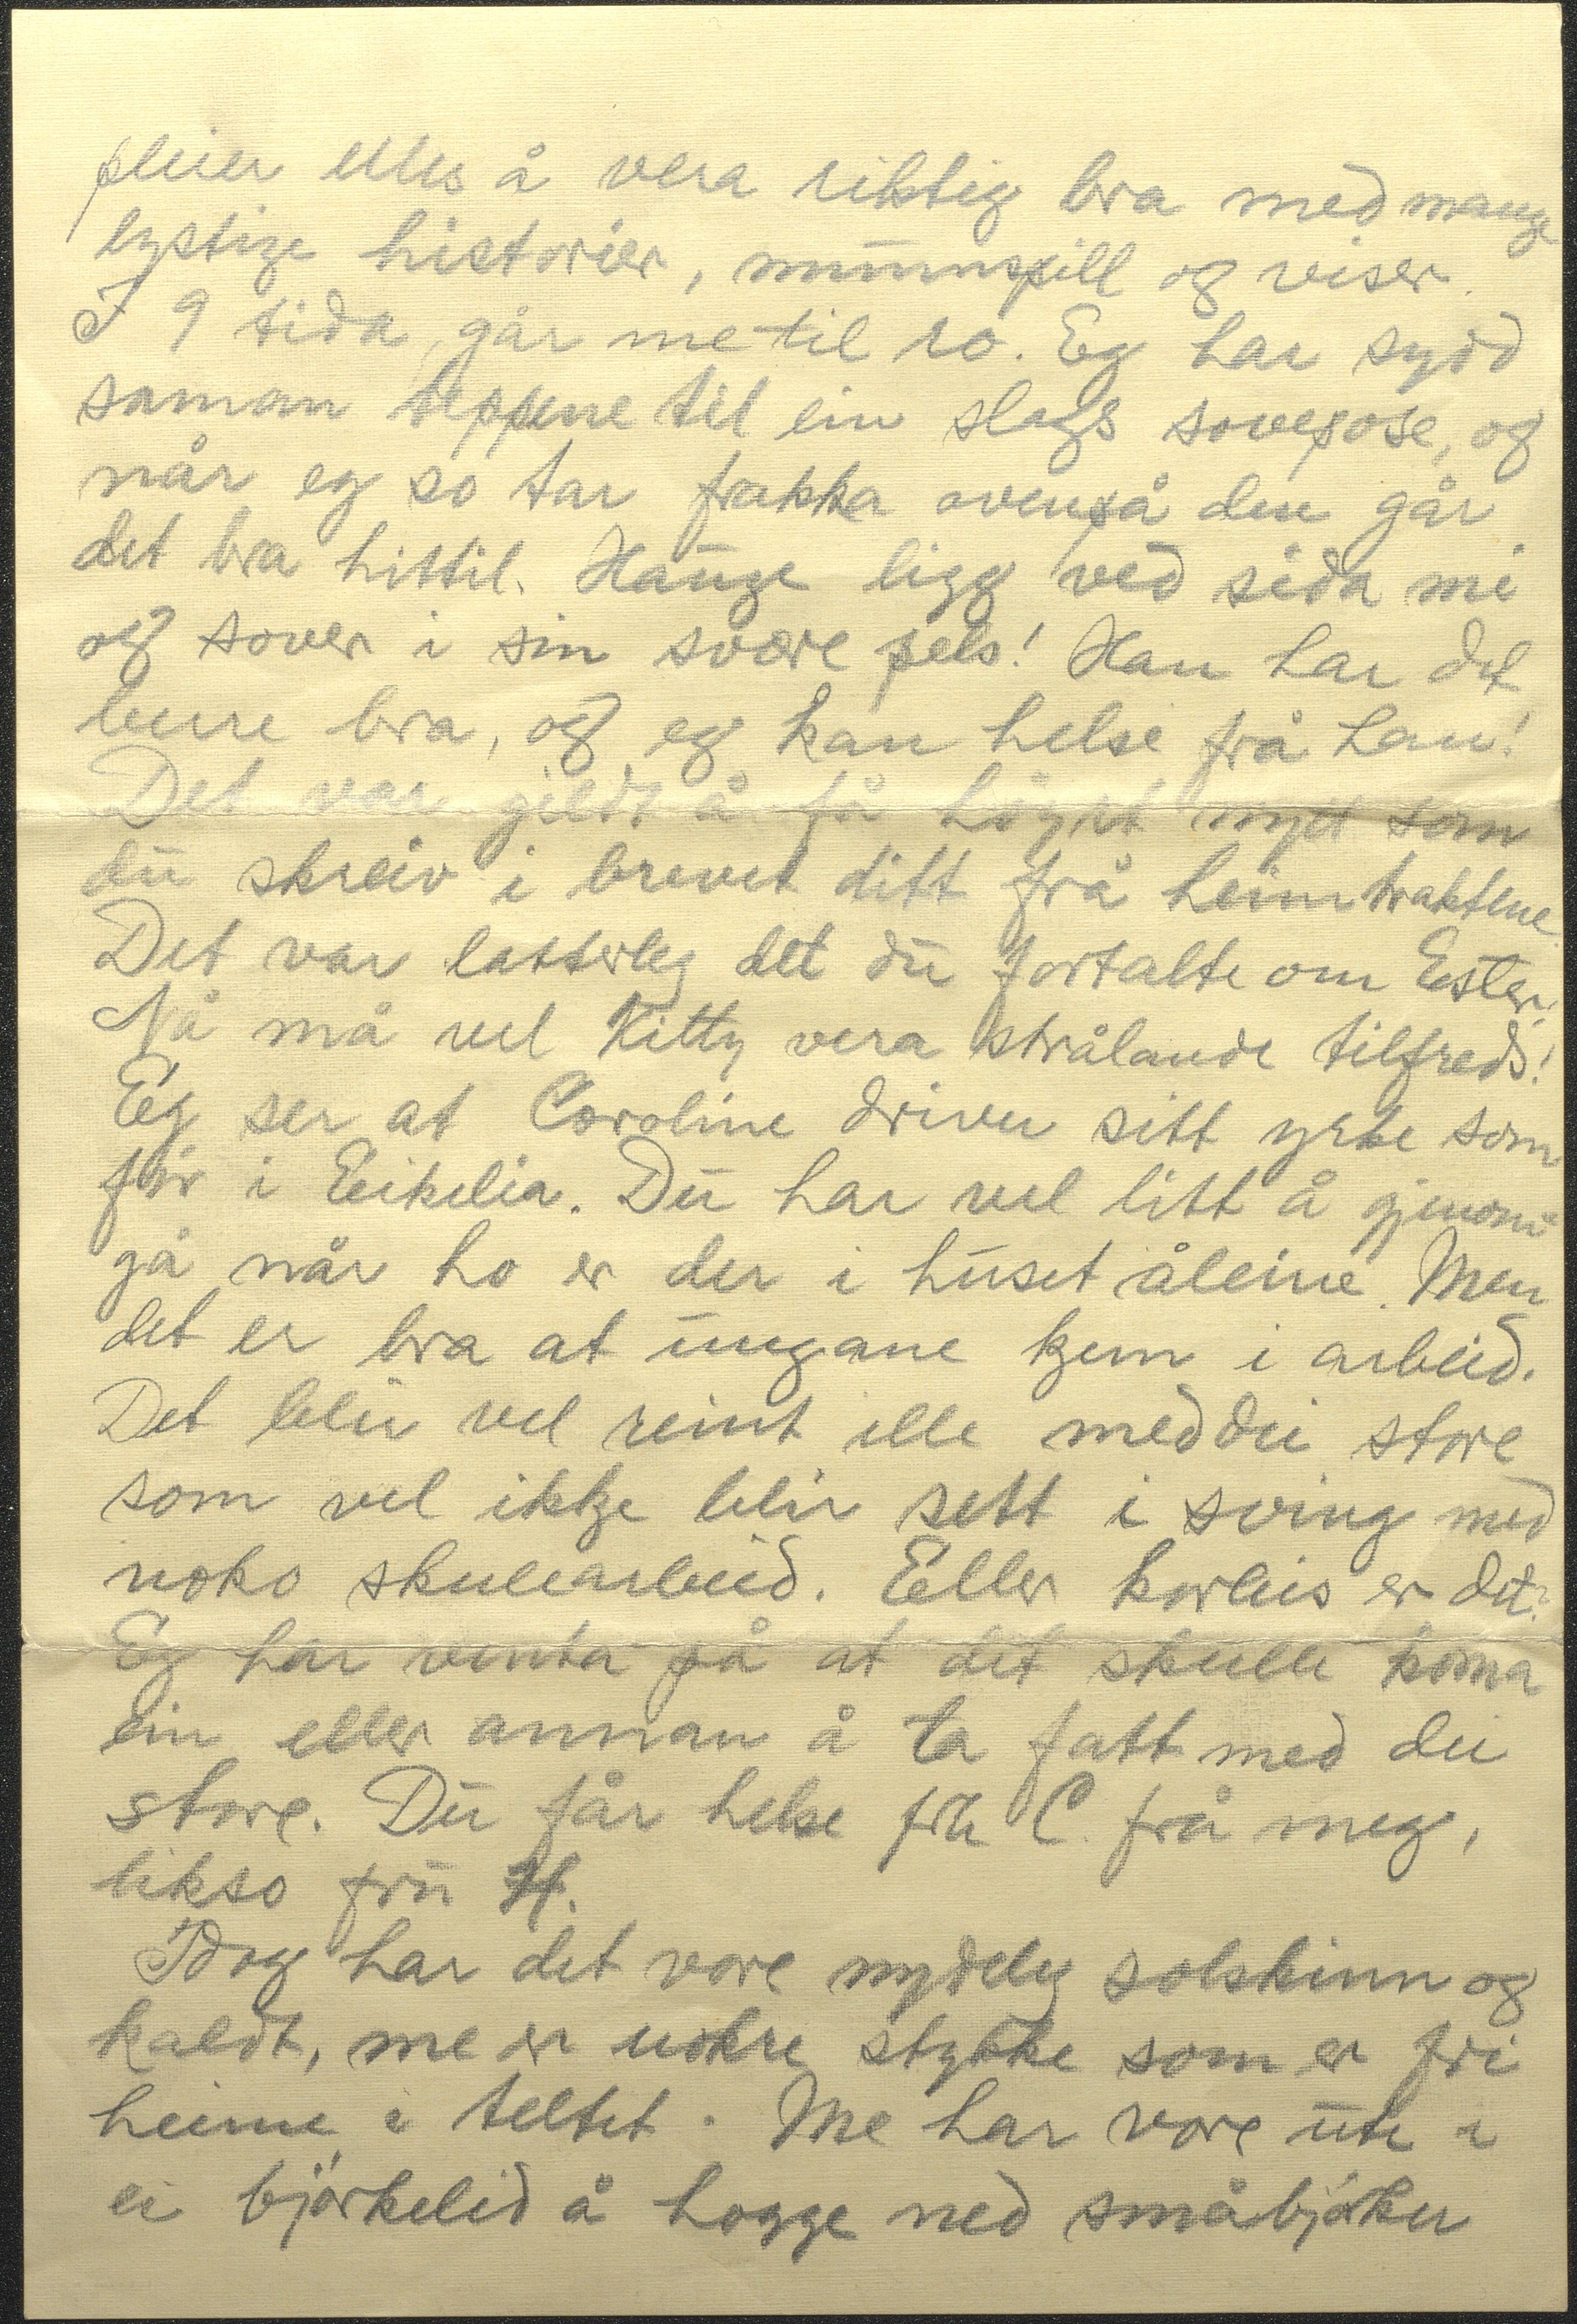 pleier elles å vera riktig bra med mange
lystige historier, munnspill og viser.
I 9 tida går me til ro. Eg har sydd
saman teppene til ein slags sovepose, og
når eg so tar frakka ovenpå den går
det bra hittil. Hauge ligg ved sida mi
og sover i sin svære pels! Han har det
berre bra, og eg kan helse frå han!
Det var gildt å få høyrt nytt som
du skreiv i brevet ditt frå heimtraktene.
Det var latterleg det du fortalte om Ester!
Nå må vel Kitty vera strålande tilfreds!
Eg ser at Caroline driver sitt yrke som
før i Eikelia. Du har vel litt å gjenom-
gå når ho er der i huset åleine. Men
det er bra at ungane kjem i arbeid.
Det blir vel reint ille med dei store
som vel ikkje blir sett i sving med
noko skulearbeid. Eller korleis er det?
Eg har venta på at det skulle koma
ein eller annan å ta fatt med dei
store. Du får helse frk C. frå meg,
likso fru H.
Idag har det vore nydeleg solskinn og
kaldt, me er nokre stykke som er fri
heime i teltet. Me har vore ute i
ei bjørkelid å hogge ned småbjøker